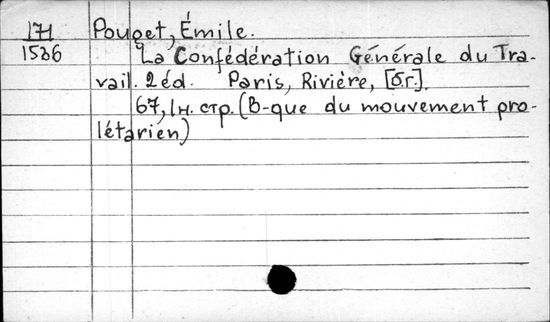 171 Pouget, Émile.
1536 La Confédération Générale du Tra-
vail. 2 éd. Paris, Rivière, [б.г.].
67, 1 н. стр. (B-que du mouvement pro-
létarien)